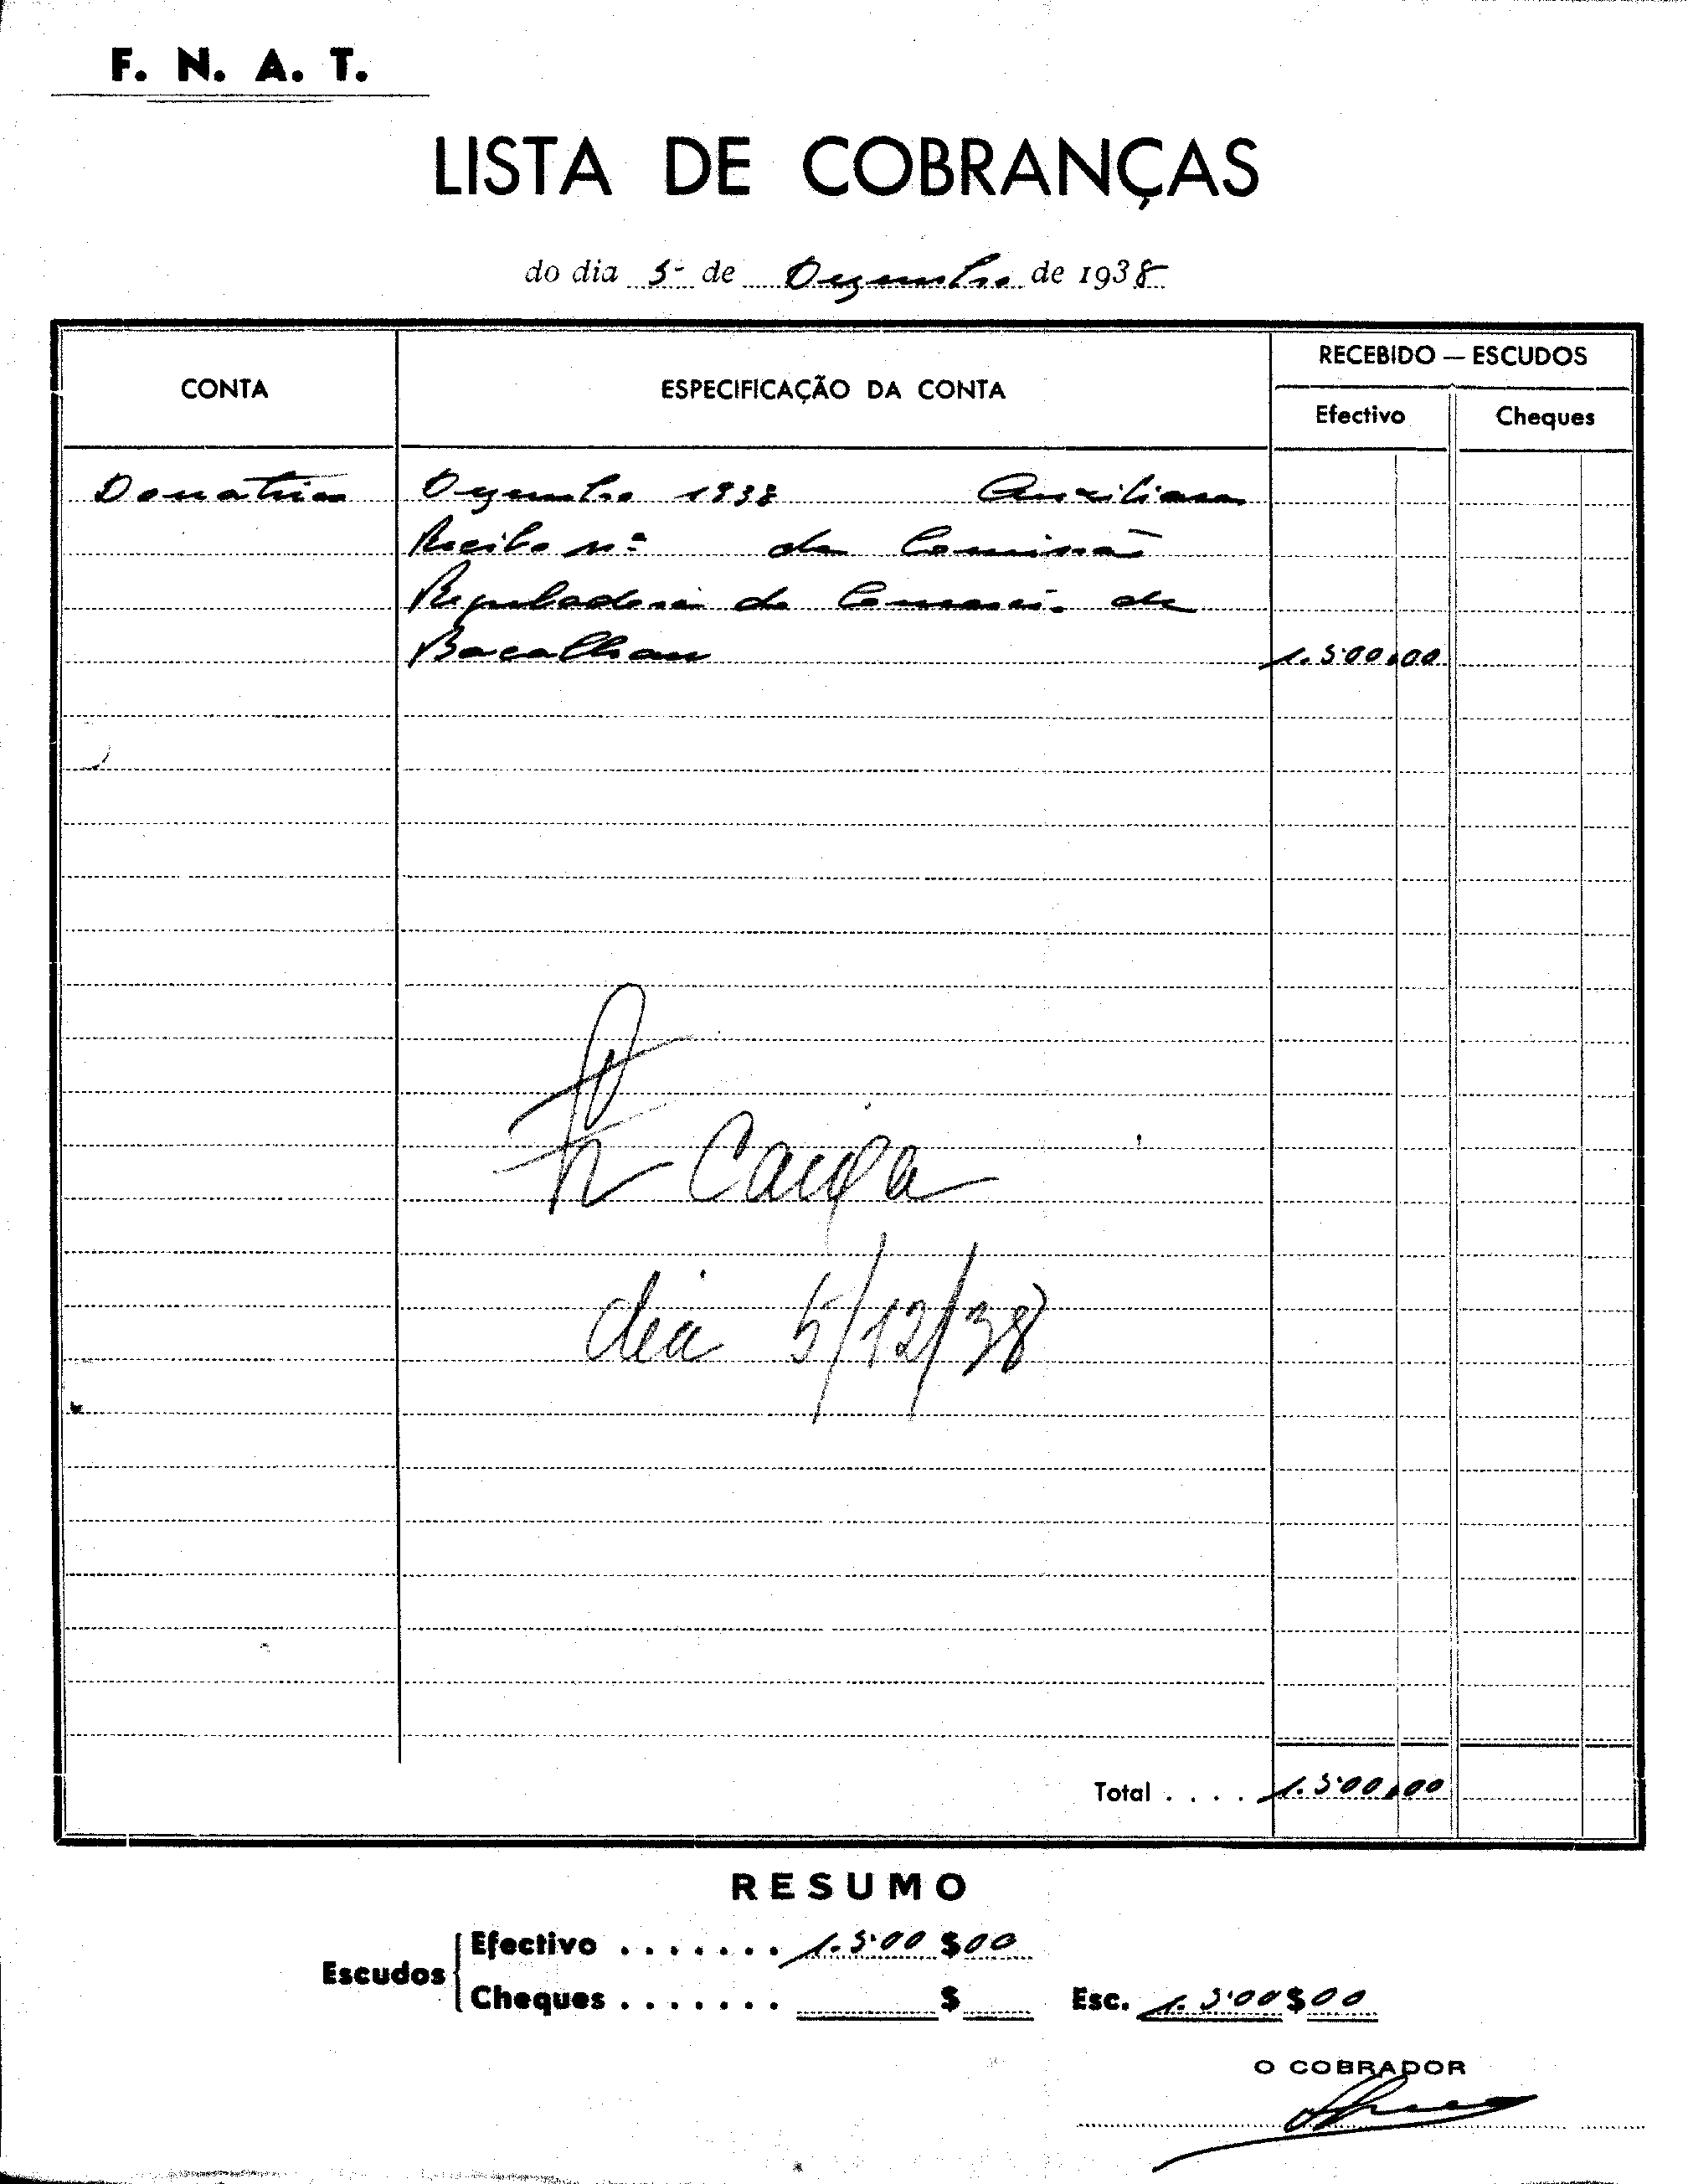 F. N. A. T.
LISTA DE COBRANÇAS
do dia 5 de Dezembro de 1938
CONTA
ESPECIFICAÇÃO DA CONTA
RECEBIDO — ESCUDOS
Efectivo
Cheques
Donativos Dezembro 1938
Recibo nº da Comissão
Reguladora do Comercio de
Bacalhau 1.500,00
Caixa
dia 5/12/38
Total . . . . 1.500,00
RESUMO
Escudos
Efectivo . . . . . . . 1.500 $00
Cheques . . . . . . . $
Esc. 1.500$00
O COBRADOR